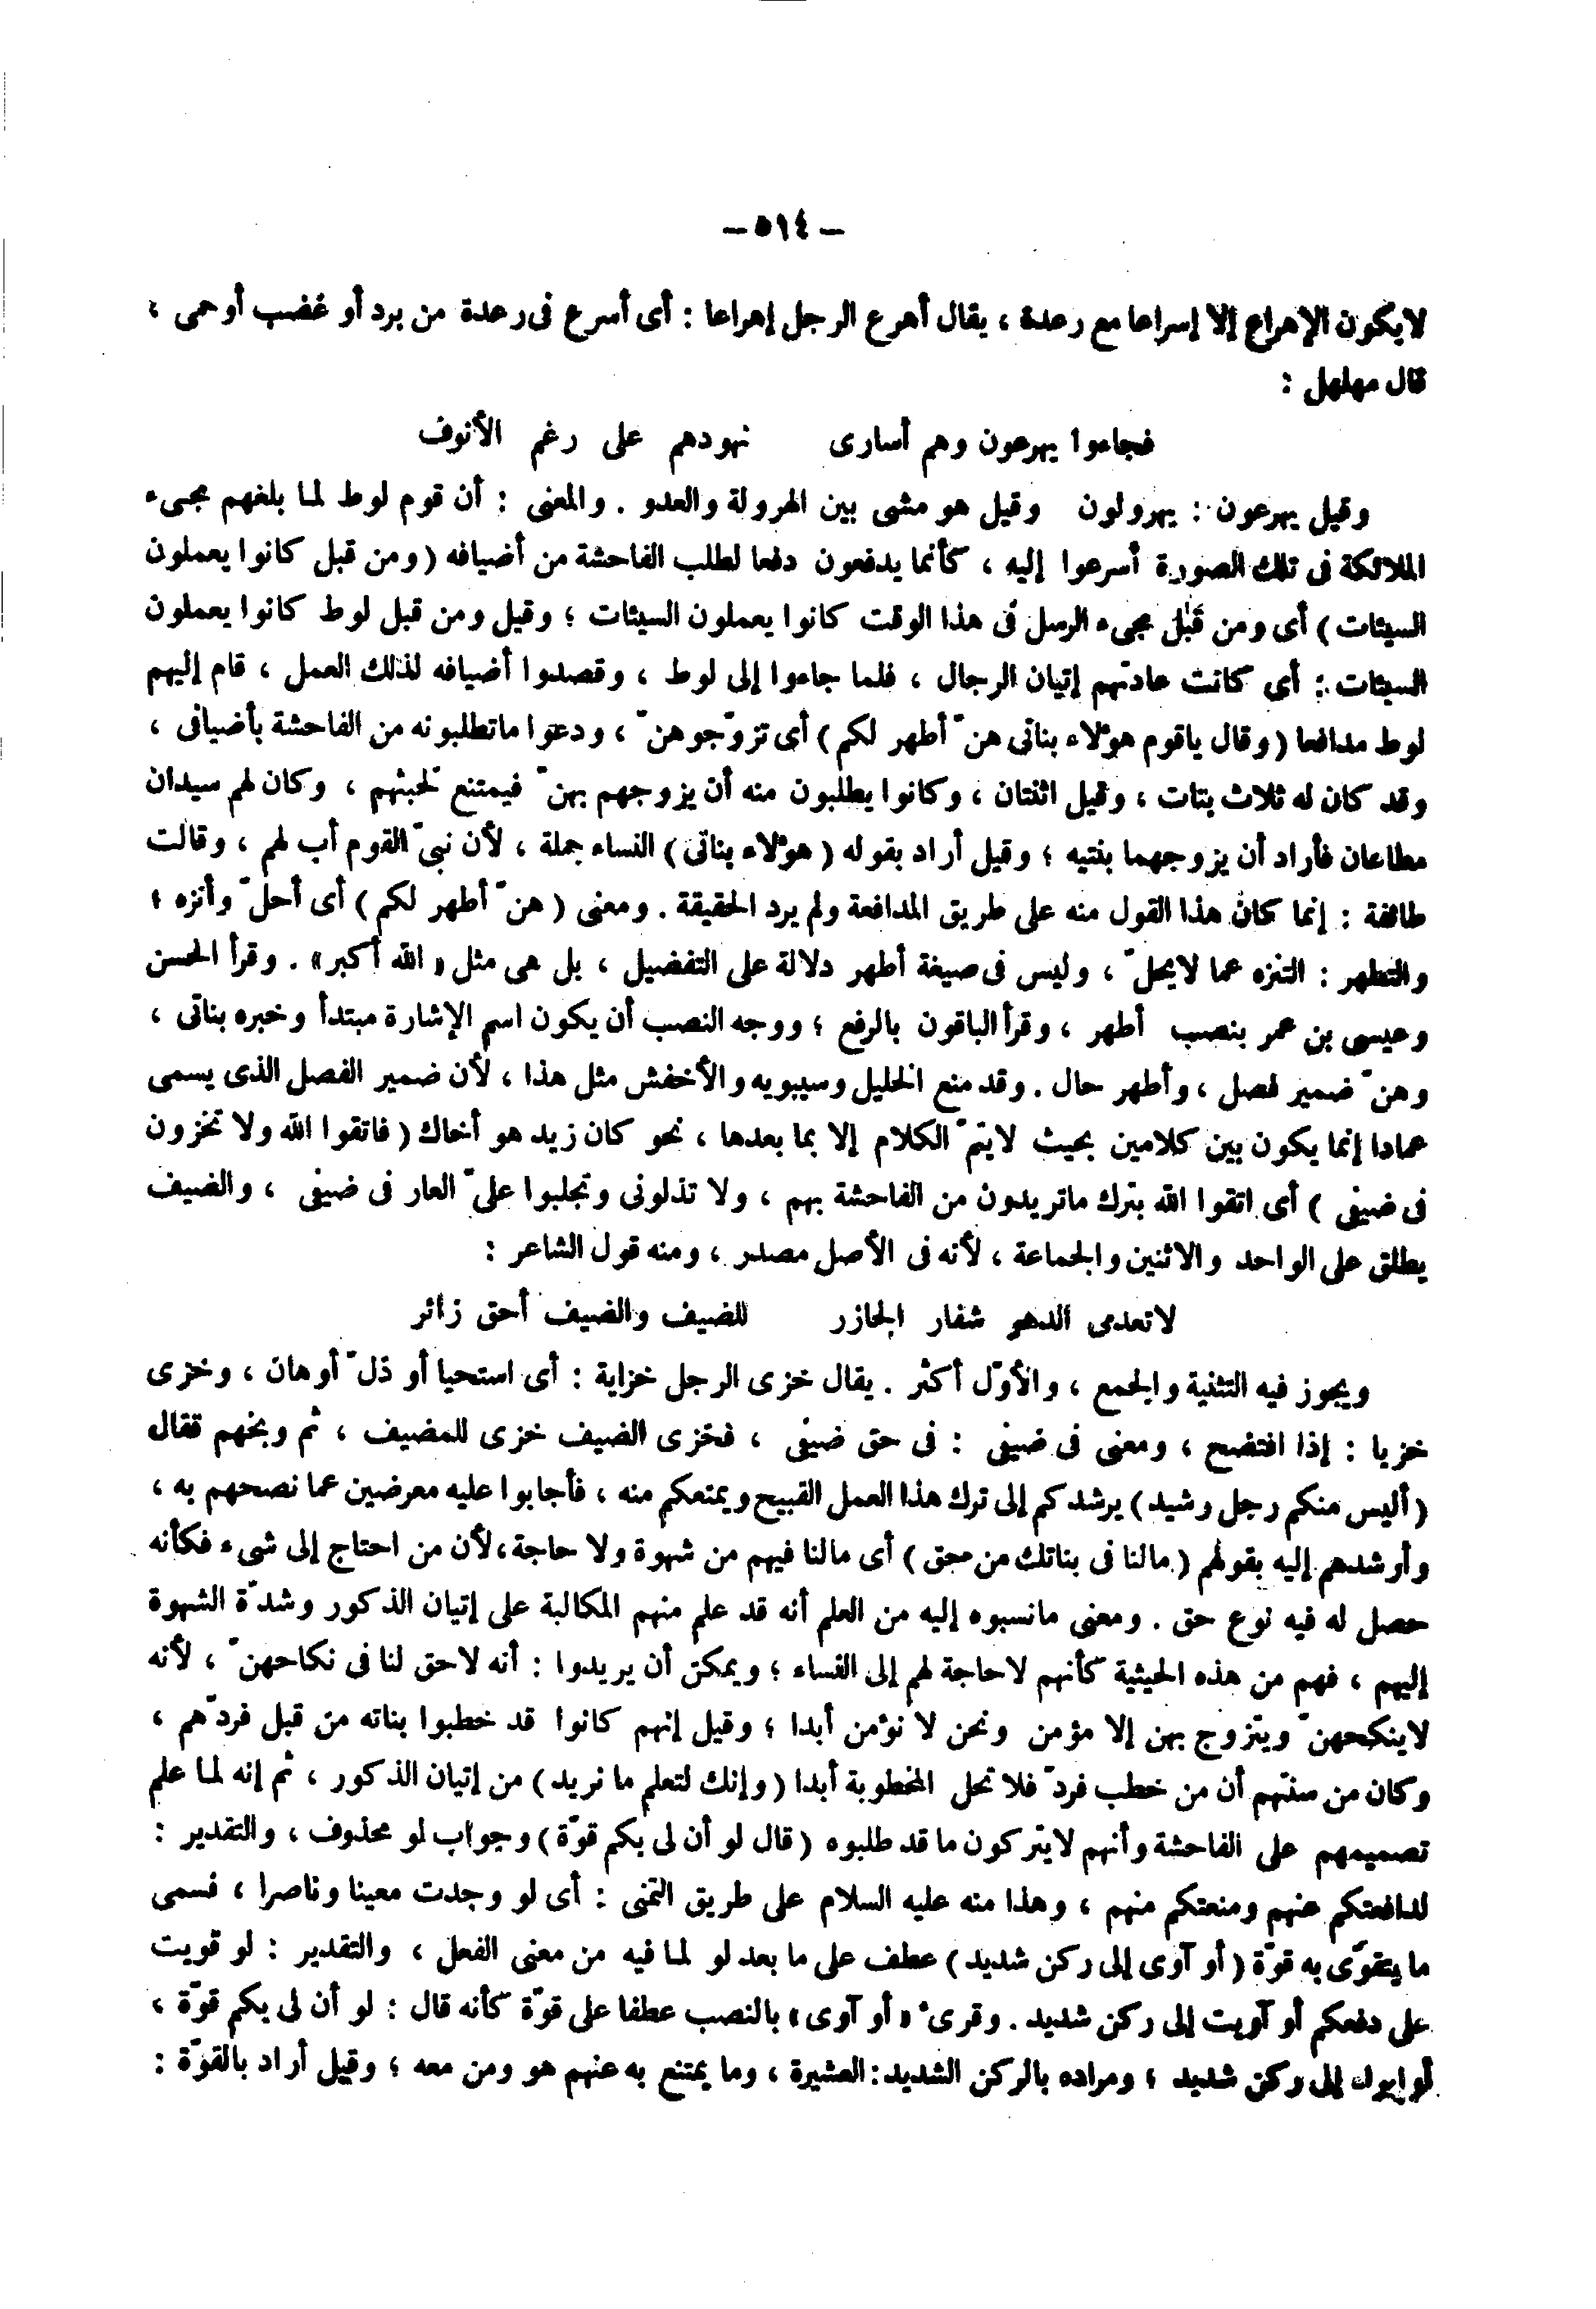 — ٥١٤ —
لايكون الإهراع إلا إسراعا مع رعدة ، يقال أهرع الرجل إهراعا : أى أسرع فى رعدة من برد أو غضب أو حمى ،
قال مهلهل :
فجاءوا يهرعون وهم أسارى نهودهم على رغم الأنوف
وقيل يهرعون : يهرولون وقيل هو مشى بين الهرولة والعدو . والمعنى : أن قوم لوط لما بلغهم مجىء
الملائكة فى تلك الصورة أسرعوا إليه ، كأنما يدفعون دفعا لطلب الفاحشة من أضيافه ( ومن قبل كانوا يعملون
السيئات ) أى ومن قبل مجىء الرسل فى هذا الوقت كانوا يعملون السيئات ؛ وقيل ومن قبل لوط كانوا يعملون
السيئات : أى كانت عادتهم إتيان الرجال ، فلما جاءوا إلى لوط ، وقصدوا أضيافه لذلك العمل ، قام إليهم
لوط مدافعا ( وقال ياقوم هؤلاء بناتى هنّ أطهر لكم ) أى تزوّجوهنّ ، ودعوا ماتطلبونه من الفاحشة بأضيافى ،
وقد كان له ثلاث بنات ، وقيل اثنتان ، وكانوا يطلبون منه أن يزوجهم بهنّ فيمتنع لخبثهم ، وكان لهم سيدان
مطاعان فأراد أن يزوجهما بنتيه ؛ وقيل أراد بقوله ( هؤلاء بناتى ) النساء جملة ، لأن نبىّ القوم أب لهم ، وقالت
طائفة : إنما كان هذا القول منه على طريق المدافعة ولم يرد الحقيقة . ومعنى ( هنّ أطهر لكم ) أى أحلّ وأنزه ؛
والتطهر : التنزه عما لايحلّ ، وليس فى صيغة أطهر دلالة على التفضيل ، بل هى مثل « الله أكبر » . وقرأ الحسن
وعيسى بن عمر بنصب أطهر ، وقرأ الباقون بالرفع ؛ ووجه النصب أن يكون اسم الإشارة مبتدأ وخبره بناتى ،
وهنّ ضمير فصل ، وأطهر حال . وقد منع الخليل وسيبويه والأخفش مثل هذا ، لأن ضمير الفصل الذى يسمى
عمادا إنما يكون بين كلامين بحيث لايتمّ الكلام إلا بما بعدها ، نحو كان زيد هو أخاك ( فاتقوا الله ولا تخزون
فى ضيفى ) أى اتقوا الله بترك ماتريدون من الفاحشة بهم ، ولا تذلونى وتجلبوا علىّ العار فى ضيفى ، والضيف
يطلق على الواحد والاثنين والجماعة ، لأنه فى الأصل مصدر ، ومنه قول الشاعر :
لاتعدمى الدهر شفار الجازر للضيف والضيف أحق زائر
ويجوز فيه التثنية والجمع ، والأوّل أكثر . يقال خزى الرجل خزاية : أى استحيا أو ذلّ أوهان ، وخزى
خزيا : إذا افتضح ، ومعنى فى ضيفى : فى حق ضيفى ، فخزى الضيف خزى للمضيف ، ثم وبخهم فقال
( أليس منكم رجل رشيد ) يرشدكم إلى ترك هذا العمل القبيح ويمنعكم منه ، فأجابوا عليه معرضين عما نصحهم به ،
وأرشدهم إليه بقولهم ( مالنا فى بناتك من حق ) أى مالنا فيهم من شهوة ولا حاجة ، لأن من احتاج إلى شىء فكأنه
حصل له فيه نوع حق . ومعنى مانسبوه إليه من العلم أنه قد علم منهم المكالبة على إتيان الذكور وشدّة الشهوة
إليهم ، فهم من هذه الحيثية كأنهم لاحاجة لهم إلى النساء ؛ ويمكن أن يريدوا : أنه لاحق لنا فى نكاحهنّ ، لأنه
لاينكحهنّ ويتزوج بهن إلا مؤمن ونحن لا نؤمن أبدا ؛ وقيل إنهم كانوا قد خطبوا بناته من قبل فردّهم ،
وكان من سنتهم أن من خطب فردّ فلا تحل المخطوبة أبدا ( وإنك لتعلم ما نريد ) من إتيان الذكور ، ثم إنه لما علم
تصميمهم على الفاحشة وأنهم لايتركون ما قد طلبوه ( قال لو أن لى بكم قوّة ) وجواب لو محذوف ، والتقدير :
لدافعتكم عنهم ومنعتكم منهم ، وهذا منه عليه السلام على طريق التمنى : أى لو وجدت معينا وناصرا ، فسمى
ما يتقوّى به قوّة ( أو آوى إلى ركن شديد ) عطف على ما بعد لو لما فيه من معنى الفعل ، والتقدير : لو قويت
على دفعكم أو آويت إلى ركن شديد . وقرئ « أو آوى » بالنصب عطفا على قوّة كأنه قال : لو أن لى بكم قوّة ،
أو إيواء إلى ركن شديد ؛ ومراده بالركن الشديد : العشيرة ، وما يمتنع به عنهم هو ومن معه ؛ وقيل أراد بالقوّة :